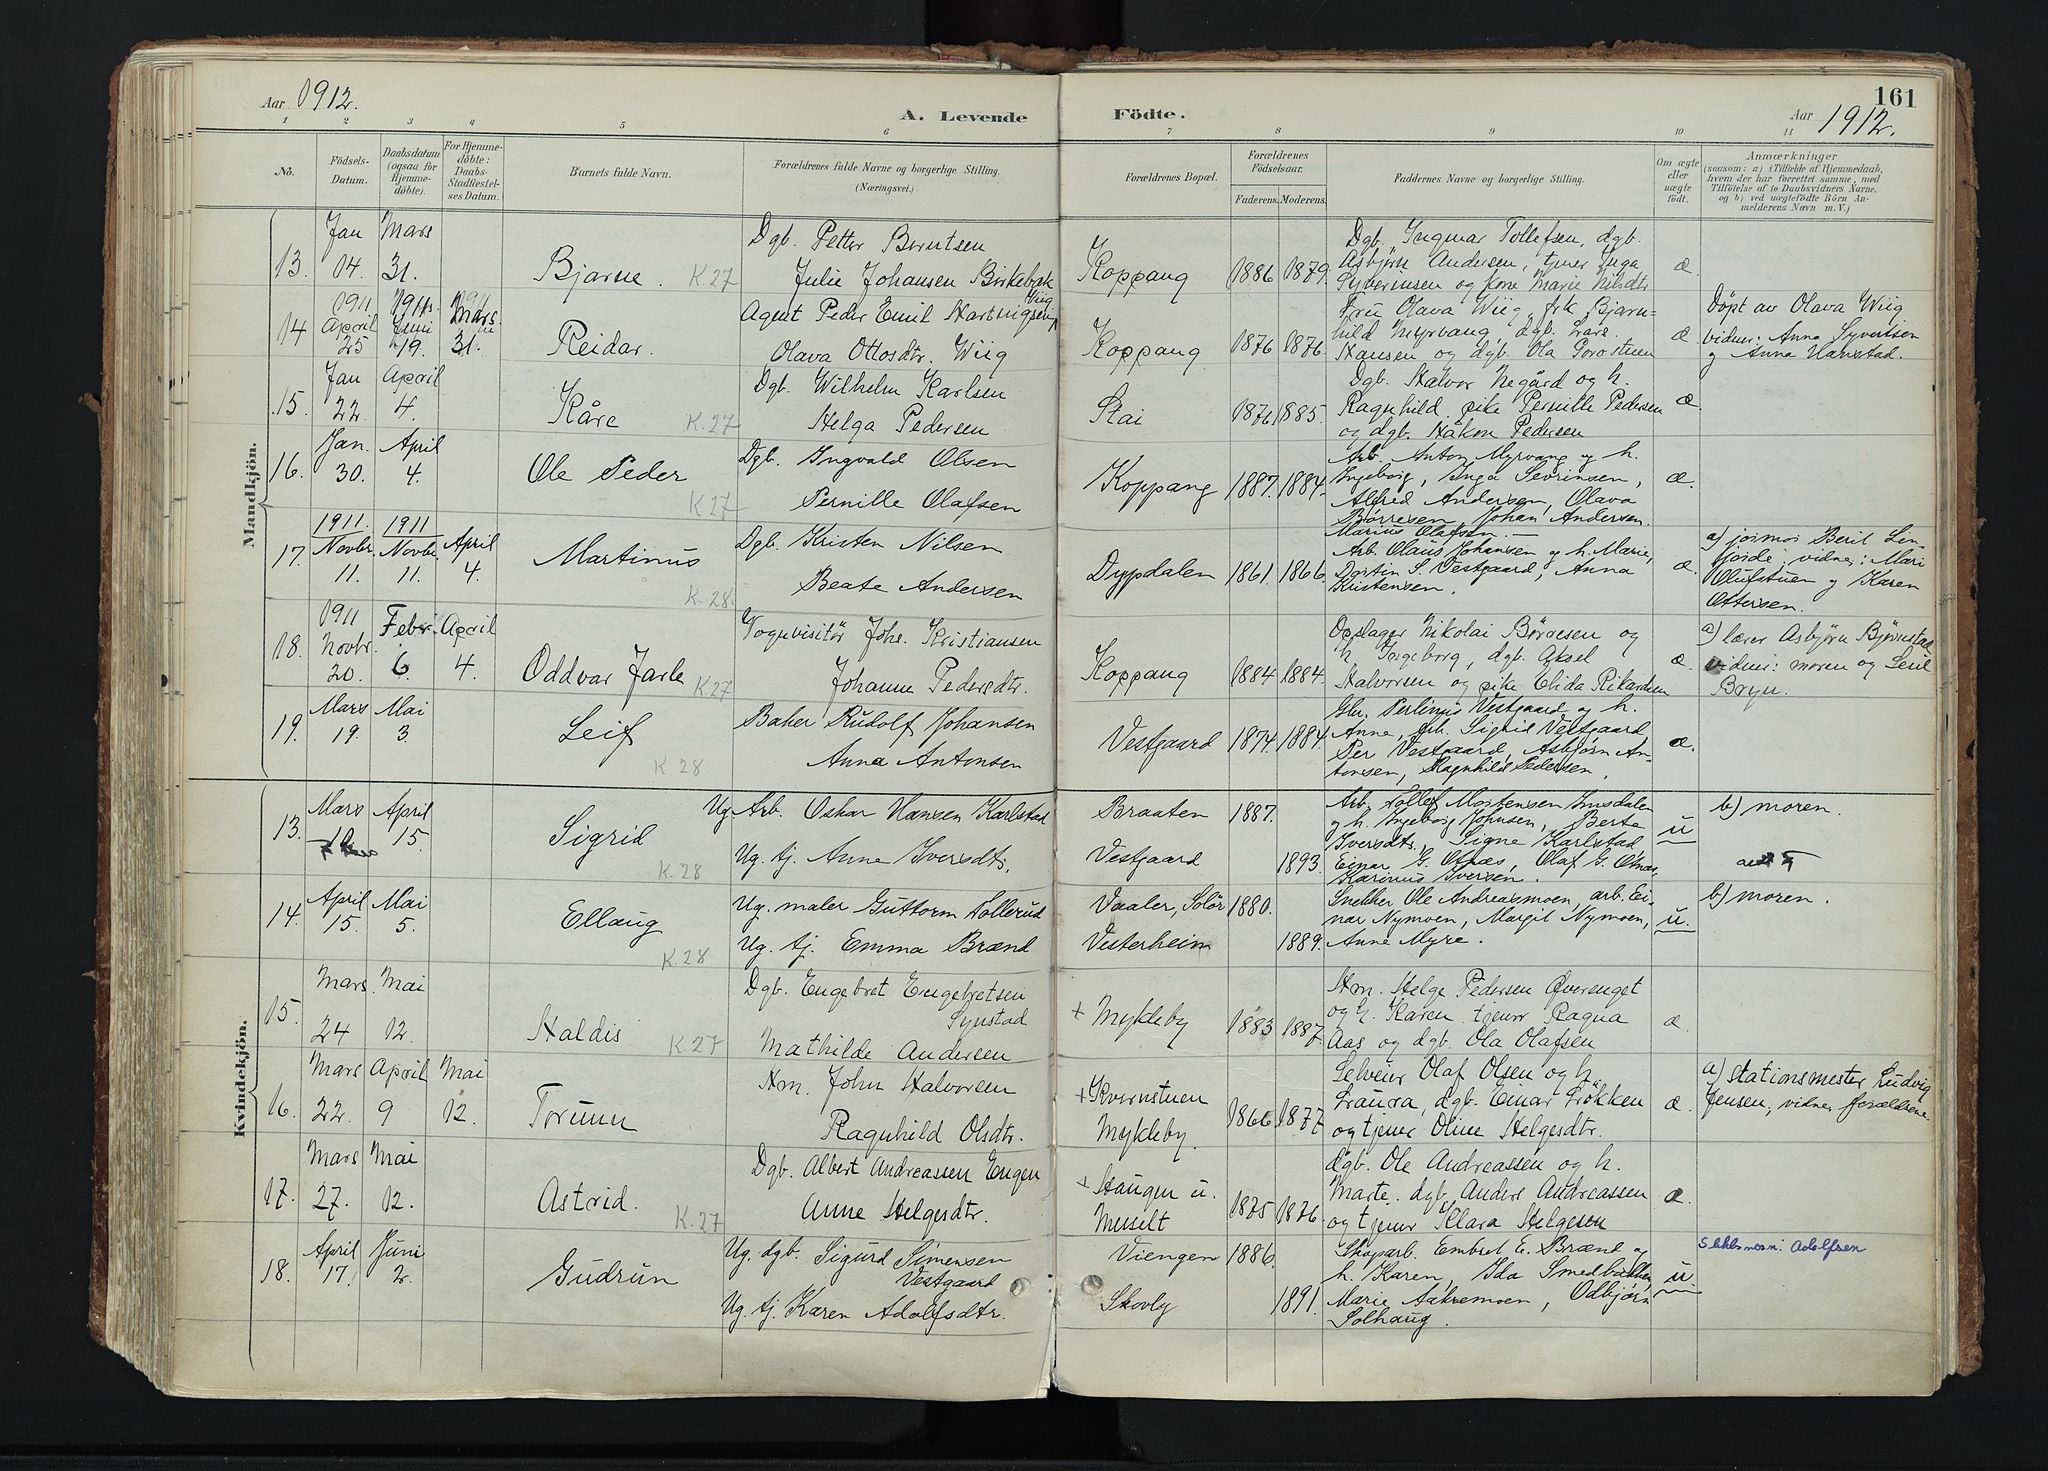 Aar 1912.
A. Levende
Födte.
Aar 1912.
161
1 2 3 4 5 6 7 8 9 10 11
No.
Födsels-
Datum.
Daabsdatum
(ogsaa for
Hjemme-
döbte).
For Hjemme-
döbte:
Daabs-
Stadfæstel-
ses Datum.
Barnets fulde Navn.
Forældrenes fulde Navne og borgerlige Stilling.
(Næringsvei.)
Forældrenes Bopæl.
Forældrenes
Födselsaar.
Faderens. Moderens.
Faddernes Navne og borgerlige Stilling.
Om ægte
eller
uægte
födt.
Anmærkninger
(saasom: a) i Tilfælde af Hjemmedaab,
hvem der har forrettet samme, med
Tilföielse af to Daabsvidners Navne,
og b) ved uægtefödte Börn An-
melderens Navn m. V.)
Mandkjön.
13. Jan 14. Mars 31.
Bjarne. K 27
Dgb. Petter Berntsen
Julie Johansen Birkebæk
Koppang 1886 1879.
Dgb. Ingmar Tollefsen, dgb.
Asbjörn Andersen, tjener Inga
Syverinsen og kone Marie Nilsdtr
æ.
14 1911 April 25 1911 Juni 19. Mars 31.
Reidar.
Agent Peder Emil Hartvigsen Wiig
Olava Ottosdtr. Wiig
Koppang 1876 1876.
Fru Olava Wiig, frk Bjarn-
hild Myrvang, dgb. Lars
Hansen og dgb. Ola
æ
Döpt av Olava Wiig
vidner: Anna Syvertsen
og Anna Harstad.
15. Jan 22. April 4.
Kåre K. 27
Dgb. Wilhelm Karlsen
Helga Pedersen
Stai 1876 1885.
Dgb. Halvor Negård og h.
Ragnhild. pike Pernille Pedersen
og dgb. Håkon Pedersen
æ.
16. Jan. 30. April 4.
Ole Peder K 27
Dgb. Ingvald Olsen
Pernille Olafsen
Koppang 1887. 1884.
Arb. Anton Myrvang og h.
Ingeborg, Inga Sevrinsen,
Alfred Andersen, Olava
Börresen, Johan Andersen.
Marius Olafsen. —
æ.
17. 1911. Novbr. 11. 1911 Novbr. 11. April 4.
Martinus K. 28.
Dgb. Kristen Nilsen
Beate Andersen
Drypdalen 1861. 1866.
Arb. Olaus Johansen og h. Marie,
S. Vestgaard, Anna
Kristensen.
æ
a) jormor Beril Lin-
fjorde; vidner: Mari
Olufstuen og Karen
Ottersen.
18. 1911 Novbr. 20. Febr. 6. April 4.
Oddvar Jarle K 27
Vognvisitör Johs. Kristiansen
Johanne Pedersdtr.
Koppang 1884 1884.
Opslager Nikolai Börresen og
h Ingeborg, dgb. Aksel
Halvorsen og pike Elida Rikardsen
æ.
a) lærer Asbjörn Björnstad
vidner: moren og
Bryn.
19. Mars 19. Mai 3.
Leif K 28
Baker Rudolf Johansen
Anna Antonsen
Vestgaard 1874. 1884.
Gbr. Perlinus Vestgaard og h.
Anne, Arb. Sigrid Vestgaard,
Per Vestgaard, Asbjørn An-
tonsen, Ragnhild Pedersen.
æ.
Kvindekjön.
13. Mars 10 April 15.
Sigrid K. 28
Ug. Arb. Oskar Hansen Karlstad
Ug. tj. Anne Iversdtr.
Braaten 1887.
Vestgaard 1893.
Arb. Tollef Mortensen Imsdalen
og h. Ingeborg Johnsen, Berte
Iversdtr., Signe Karlstad
Einar G. Otnæs, Olaf G. Otnæs,
Karinus Iversen.
u
b) moren.
14. April 15. Mai 5.
Ellaug K. 28
Ug. maler Guttorm Tollerud
Ug. tj. Emma Brænd
Vaaler, Solör 1880.
Vesterheim 1889.
Snekker Ole Andreasmoen, arb. Ei-
nar Nymoen, Margit Nymoen,
Anne Myre.
u.
b) moren.
15. Mars 24 Mai 12.
Haldis K. 27
Dgb. Engebret Engebretsen
Synstad
Mathilde Andersen
+ Mykleby 1883 1887.
Hm. Helge Pedersen Øverenget
og h. Karen tjener Ragna
Aas og dgb. Ola Olafsen
æ
16. Mars 22. April 9 Mai 12.
Torunn
Hm. John Halvorsen
Ragnhild Olsdtr.
+ Kvernstuen
Mykleby. 1866 1877
Selveier Olaf Olsen og h.
Laura, dgb. Einar Løkken
og tjener Oline Helgesdtr.
æ
a) stationsmester Ludvig
Jensen; vidner forældrene
17. Mars 27. Mai 12.
Astrid. K. 27
Dgb. Albert Andreassen Engen
Anne Helgesdtr.
+ Haugen u.
Messelt 1875 1876.
dgb. Ole Andreassen og h.
Marte. dgb. Anders Andreassen
og tjener Klara Helgesen
æ.
18. April 17. Juni 2.
Gudrun
Ug. dgb. Sigurd Simensen
Vestgaard
Ug. tj. Karen Adolfsdtr.
Viengen 1886.
Skovly 1891.
Skogarb. Embret E. Brænd og
h. Karen, Ida Smedbakken,
Marie Aakremoen, Odbjørn
Solhaug.
u
Slektsnavn: Adolfsen